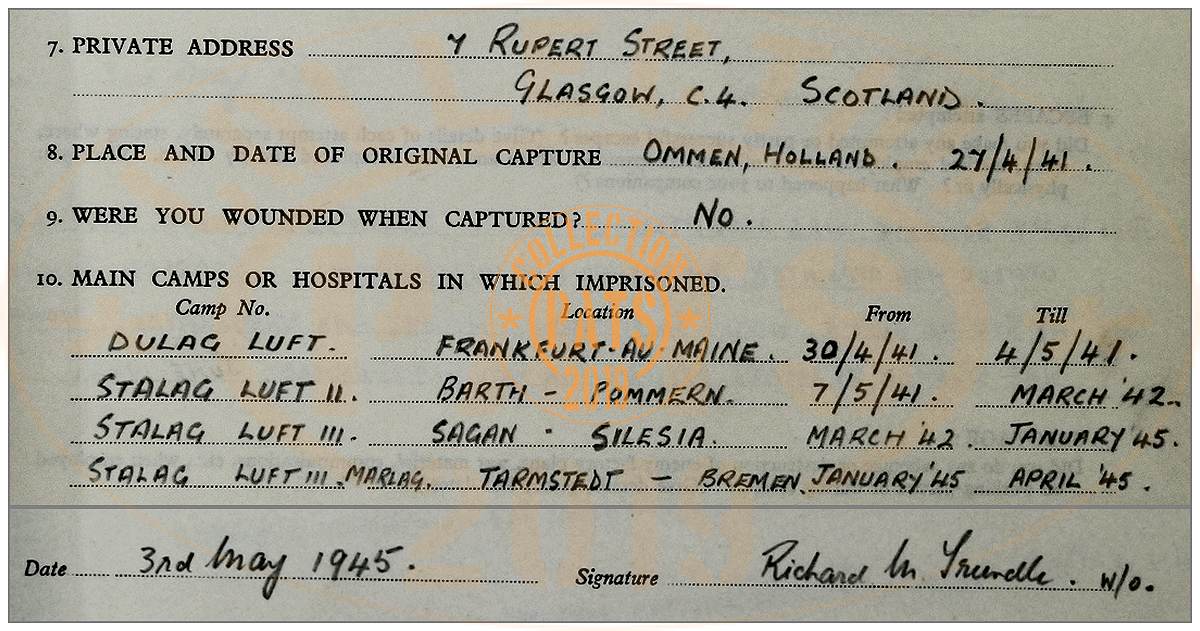 7. PRIVATE ADDRESS 7 RUPERT STREET,
GLASGOW, C.4. SCOTLAND.
8. PLACE AND DATE OF ORIGINAL CAPTURE OMMEN, HOLLAND. 27/4/41.
9. WERE YOU WOUNDED WHEN CAPTURED? NO.
10. MAIN CAMPS OR HOSPITALS IN WHICH IMPRISONED.
Camp No. Location From Till
DULAG LUFT. FRANKFURT-AU-MAINE. 30/4/41. 4/5/41.
STALAG LUFT II. BARTH - POMMERN. 7/5/41. MARCH '42.
STALAG LUFT III. SAGAN - SILESIA. MARCH '42 JANUARY '45.
STALAG LUFT III. MARLAG. TARMSTEDT - BREMEN. JANUARY '45 APRIL '45.
Date 3rd May 1945. Signature Richard M. Trundle. W/O.
COLLECTION
PATS
2019